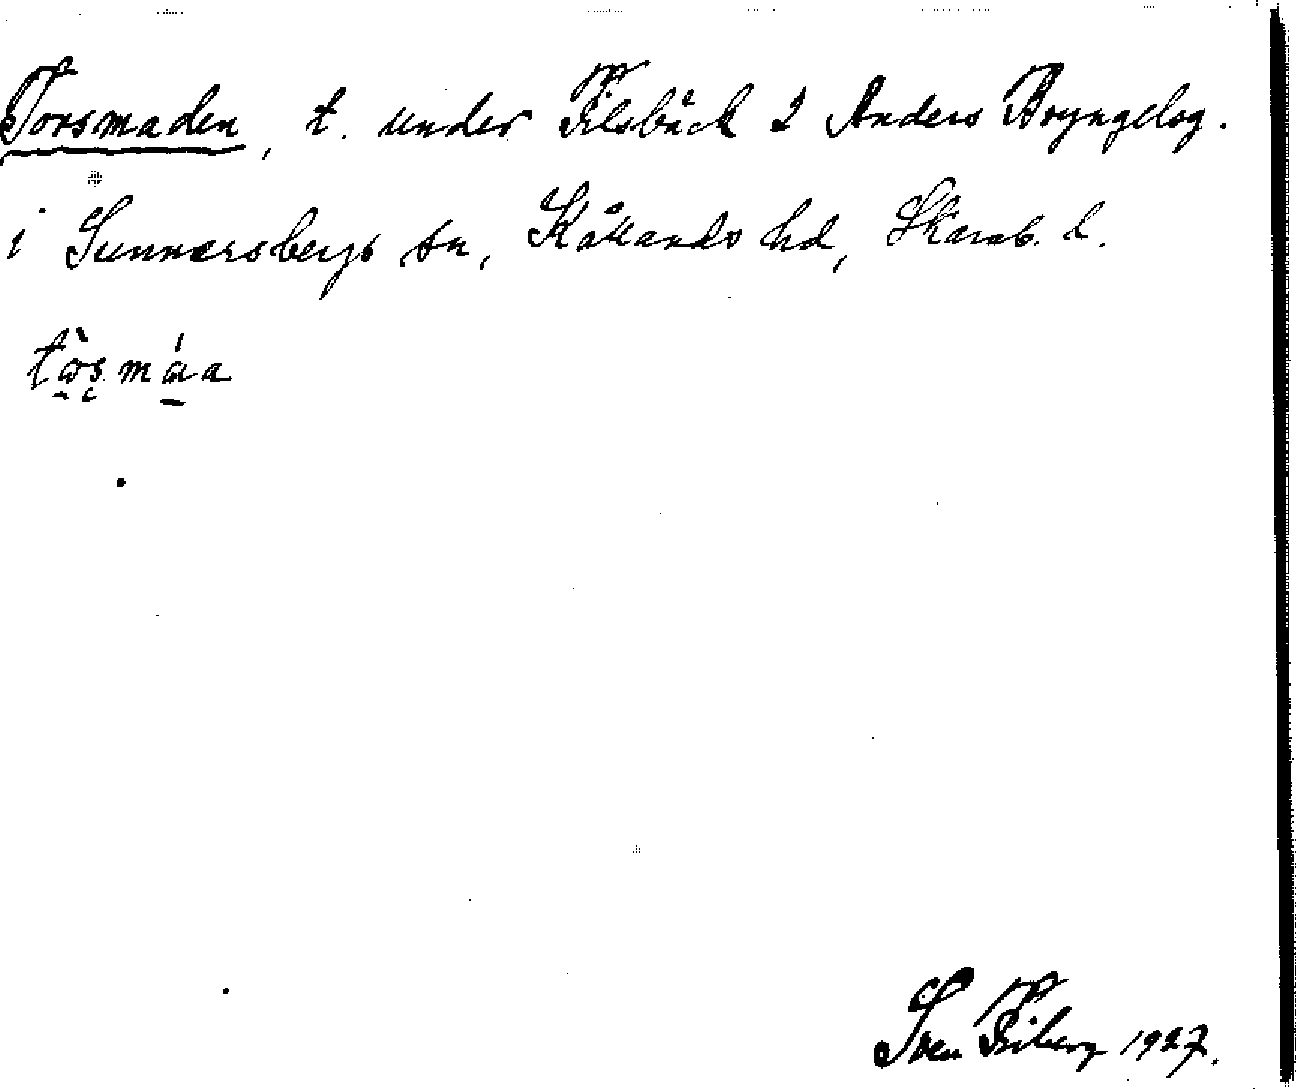 Torsmaden, t. under Filsbäck 2 Anders Bryngelsg.
i Sunnersbergs sn, Kållands hd, Skarab. l.
tòsmáa
Sven Friberg 1927.